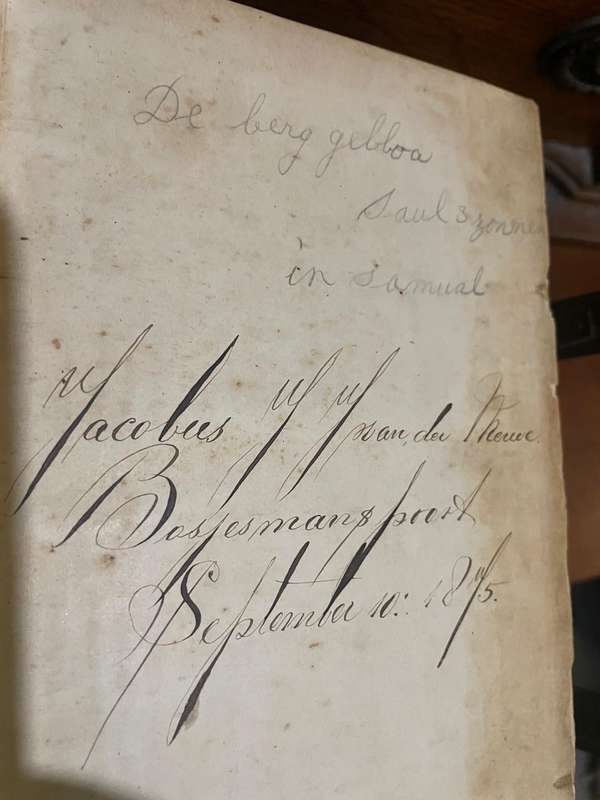 De berg gebboa
Saul 3 zonne
in samual
Jacobus J J van der Merwe.
Bosjesmans poort
September 10: 1875.